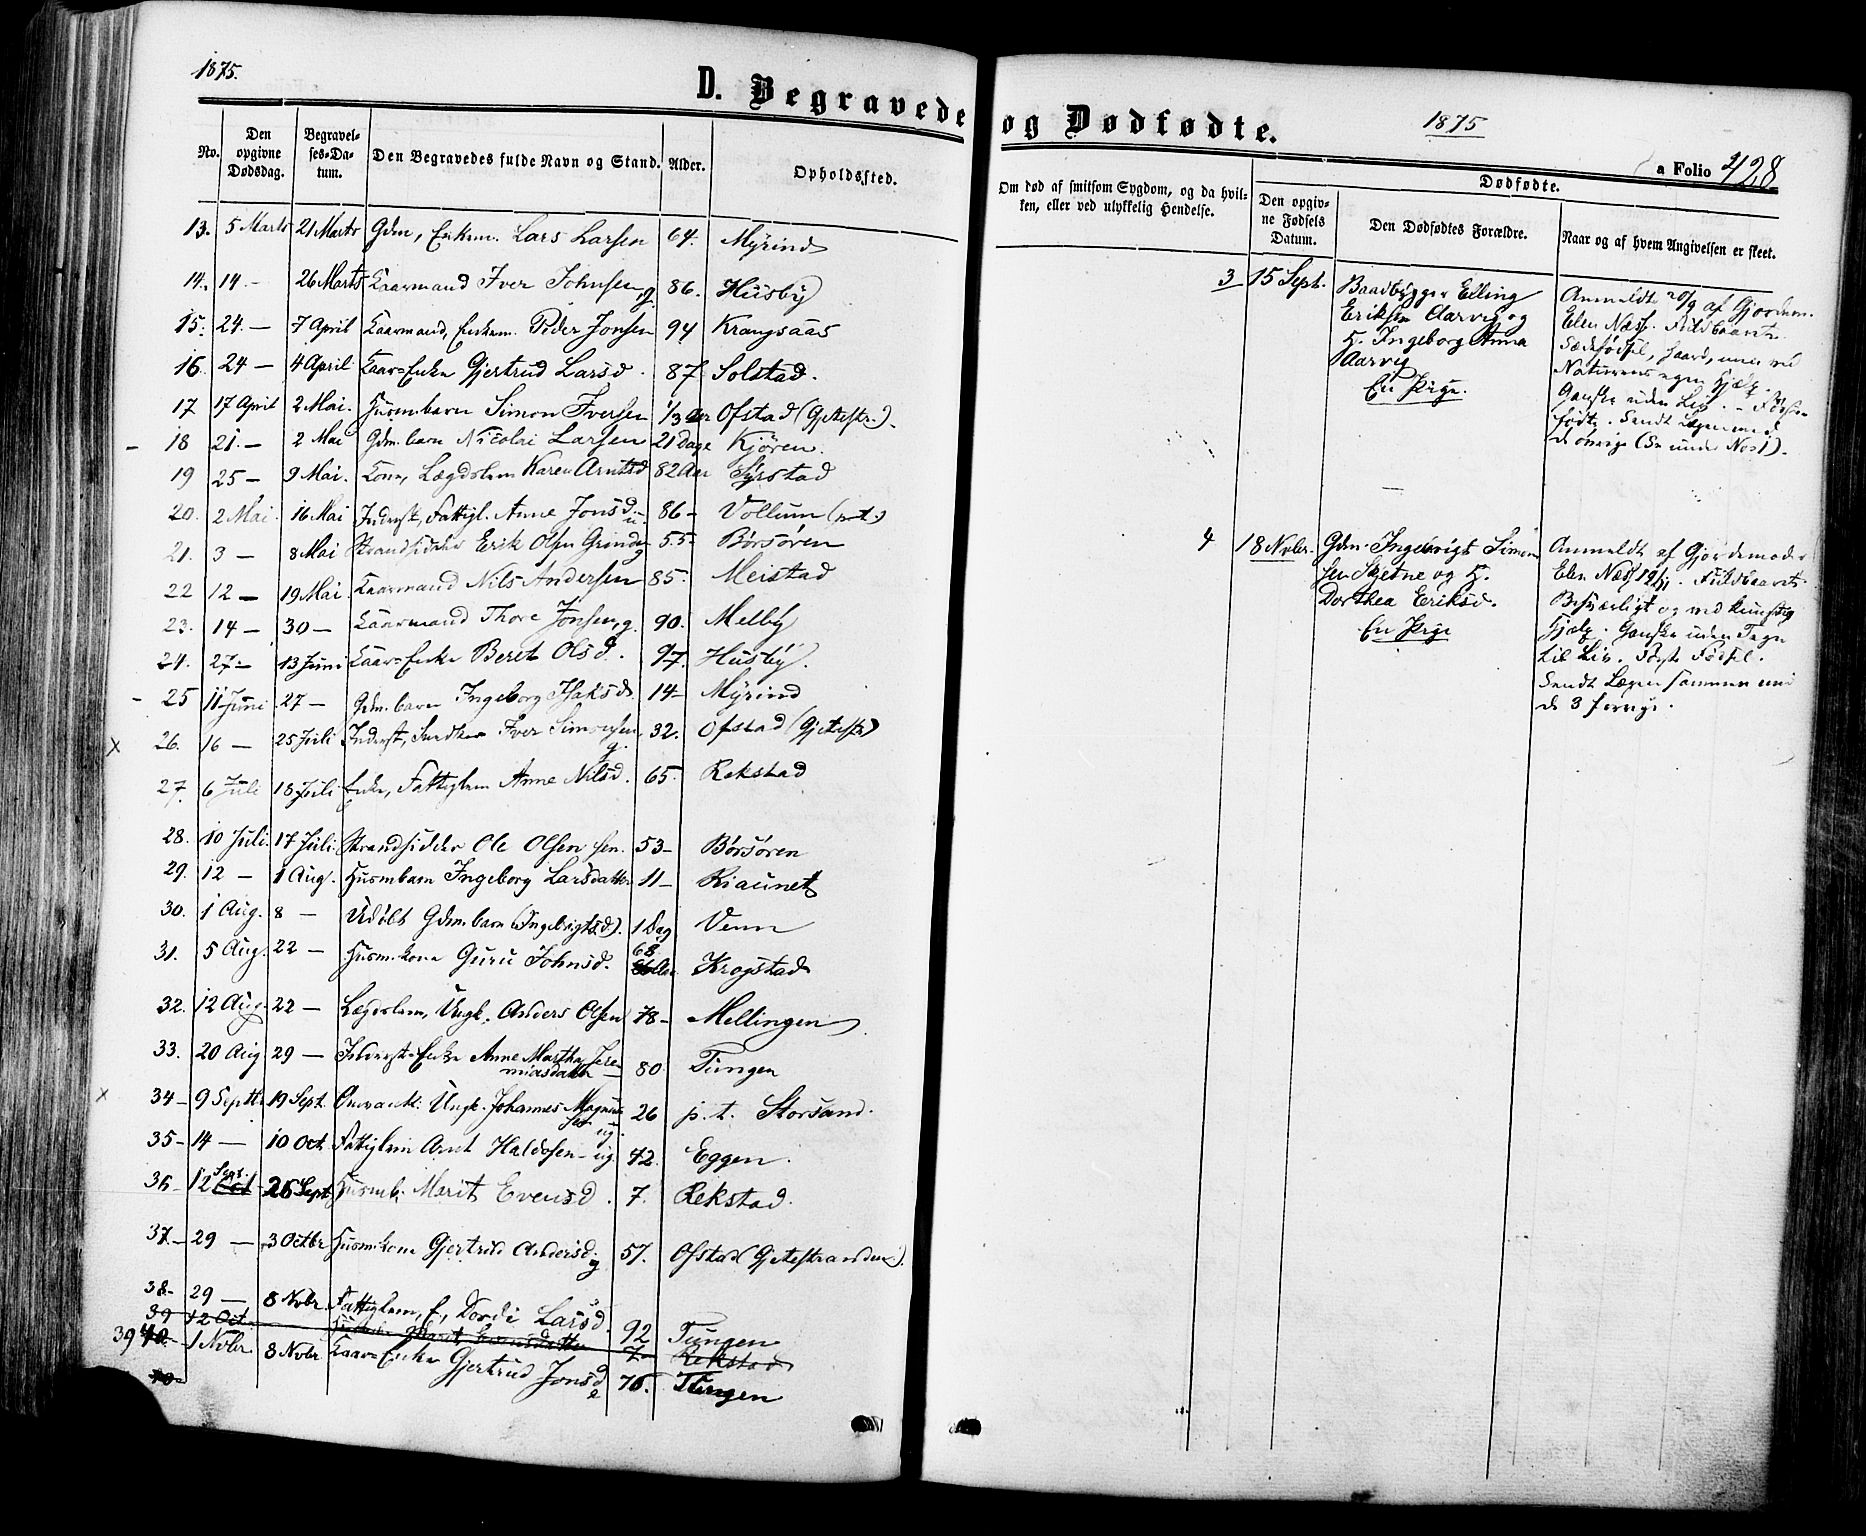 1875.
D. Begravede
No.
Den opgivne Dødsdag.
Begravelses-Datum.
Den Begravedes fulde Navn og Stand.
Alder.
Opholdssted.
13. 5 Marts 21 Marts Gdm, Enkem. Lars Larsen 64. Myrind
14. 14.- 26 Marts Kaarmand Iver Johnsen, g. 86. Husby
15. 24.- 7 April Kaarmand, Enkem. Peder Jonsen 94 Krangsaas
16. 24- 4 April Kaar-Enke Gjertrud Larsd. 87. Solstad.
17 17 April 2 Mai. Husmbarn Simon Iversen 1/3 Aar Ofstad (Gjetestr.).
18 21.- 2 Mai Gdm. barn Nicolai Larsen 21 Dage Kjören.
19 25- 9 Mai. Kone, Lægdslem Karen Arntsd 82 Aar Syrstad
20. 2 Mai. 16 Mai Inderst, Fattigl. Anne Jonsd. u. 86- Vollum
21. 3- 8 Mai Strandsidder Erik Olsen 55- Börsören
22 12- 19 Mai. Kaarmand Nils Andersen 85. Meistad
23. 14- 30- Kaarmand Thore Jonsen, g. 90. Melby
24. 27- 13 Juni Kaar-Enke Beret Olsd. 97. Husby.
25 11 Juni 27- Gdm. barn Ingeborg Isaksd. 14- Myrind
26. 16- 25 Juli Inderst, Snedker Iver Simonsen, g. 32. Ofstad (Gjetestr)
27. 6 Juli 18 Juli Enke, Fattiglem Anne Nilsd. 65. Rekstad
28. 10 Juli. 17 Juli. Strandsidder Ole Olsen sen. 53- Börsören
29. 12- 1 Aug. Husmbarn Ingeborg Larsdatter 11- Riaunet
30. 1 Aug. 8- Udöbt Gdm. barn (Ingebrigtsd). 1 Dag Venn
31. 5 Aug. 22- Husm. kone Guru Johnsd. 68 Aar Krogstad
32. 12 Aug. 22- Lægdslem, Ungk. Anders Olsen 78- Mellingen
33. 20 Aug 29- Inderst-Enke Anne Martha Jere-
miasdatter 80 Tungen
34- 9 Septb. 19 Sept. Ungk. Johannes Magnus-
sen ug. 26 p. t. Storsand.
35- 14- 10 Oct. Fattiglem Arnt Haldosen- ug. 72. Eggen.
36- 12 Sept. 26 Sept. Husmb. Marit Evensd. 7. Rekstad.
37- 29- 3 Octbr Husmkone Gjertrud Andersd. g 57. Ofstad (Gjetestranden).
38- 29- 8 Nvbr. Fattiglem, E, Dordi Larsd. 92 Tungen
39 12 Oct. Marit Evensdatter 7 Rekstad
39 40 1 Nvbr. 8 Nvbr Kaar-Enke Gjertrud Jonsd. e 76. Tungen
40
og Dødfødte.
1875
a Folio 428
Om død af smitsom Sygdom, og da hvilken, eller ved ulykkelig Hendelse.
Dødfødte.
Den opgivne Fødsels Datum.
Den Dødfødtes Forældre.
Naar og af hvem Angivelsen er skeet.
3 15 Sept.
Baadbygger Elling
Eriksen Aarvig og
H. Ingeborg Anna
Aarvig
En Pige.
Anmeldt 20/9 af Gjordem.
Elen Næss. Fuldbaaret.
Sædefødsel, haard, men ved
Naturens egen Hjælp.
Ganske uden Liv.
födte. Sendt Lægen med
de øvrige (Se under No 1).
4 18 Nvbr.
Gdm. Ingebrigt Simon-
sen Skjetne og H.
Dorthea Eriksd.
En Pige
Anmeldt af Gjordemoder
Elen Næss 19/11. Fuldbaaret.
Besværligt og med kunstig
Hjælp. Ganske uden Tegn
til Liv. Første Födsel.
Sendt Lægen sammen med
de 3 forrige.